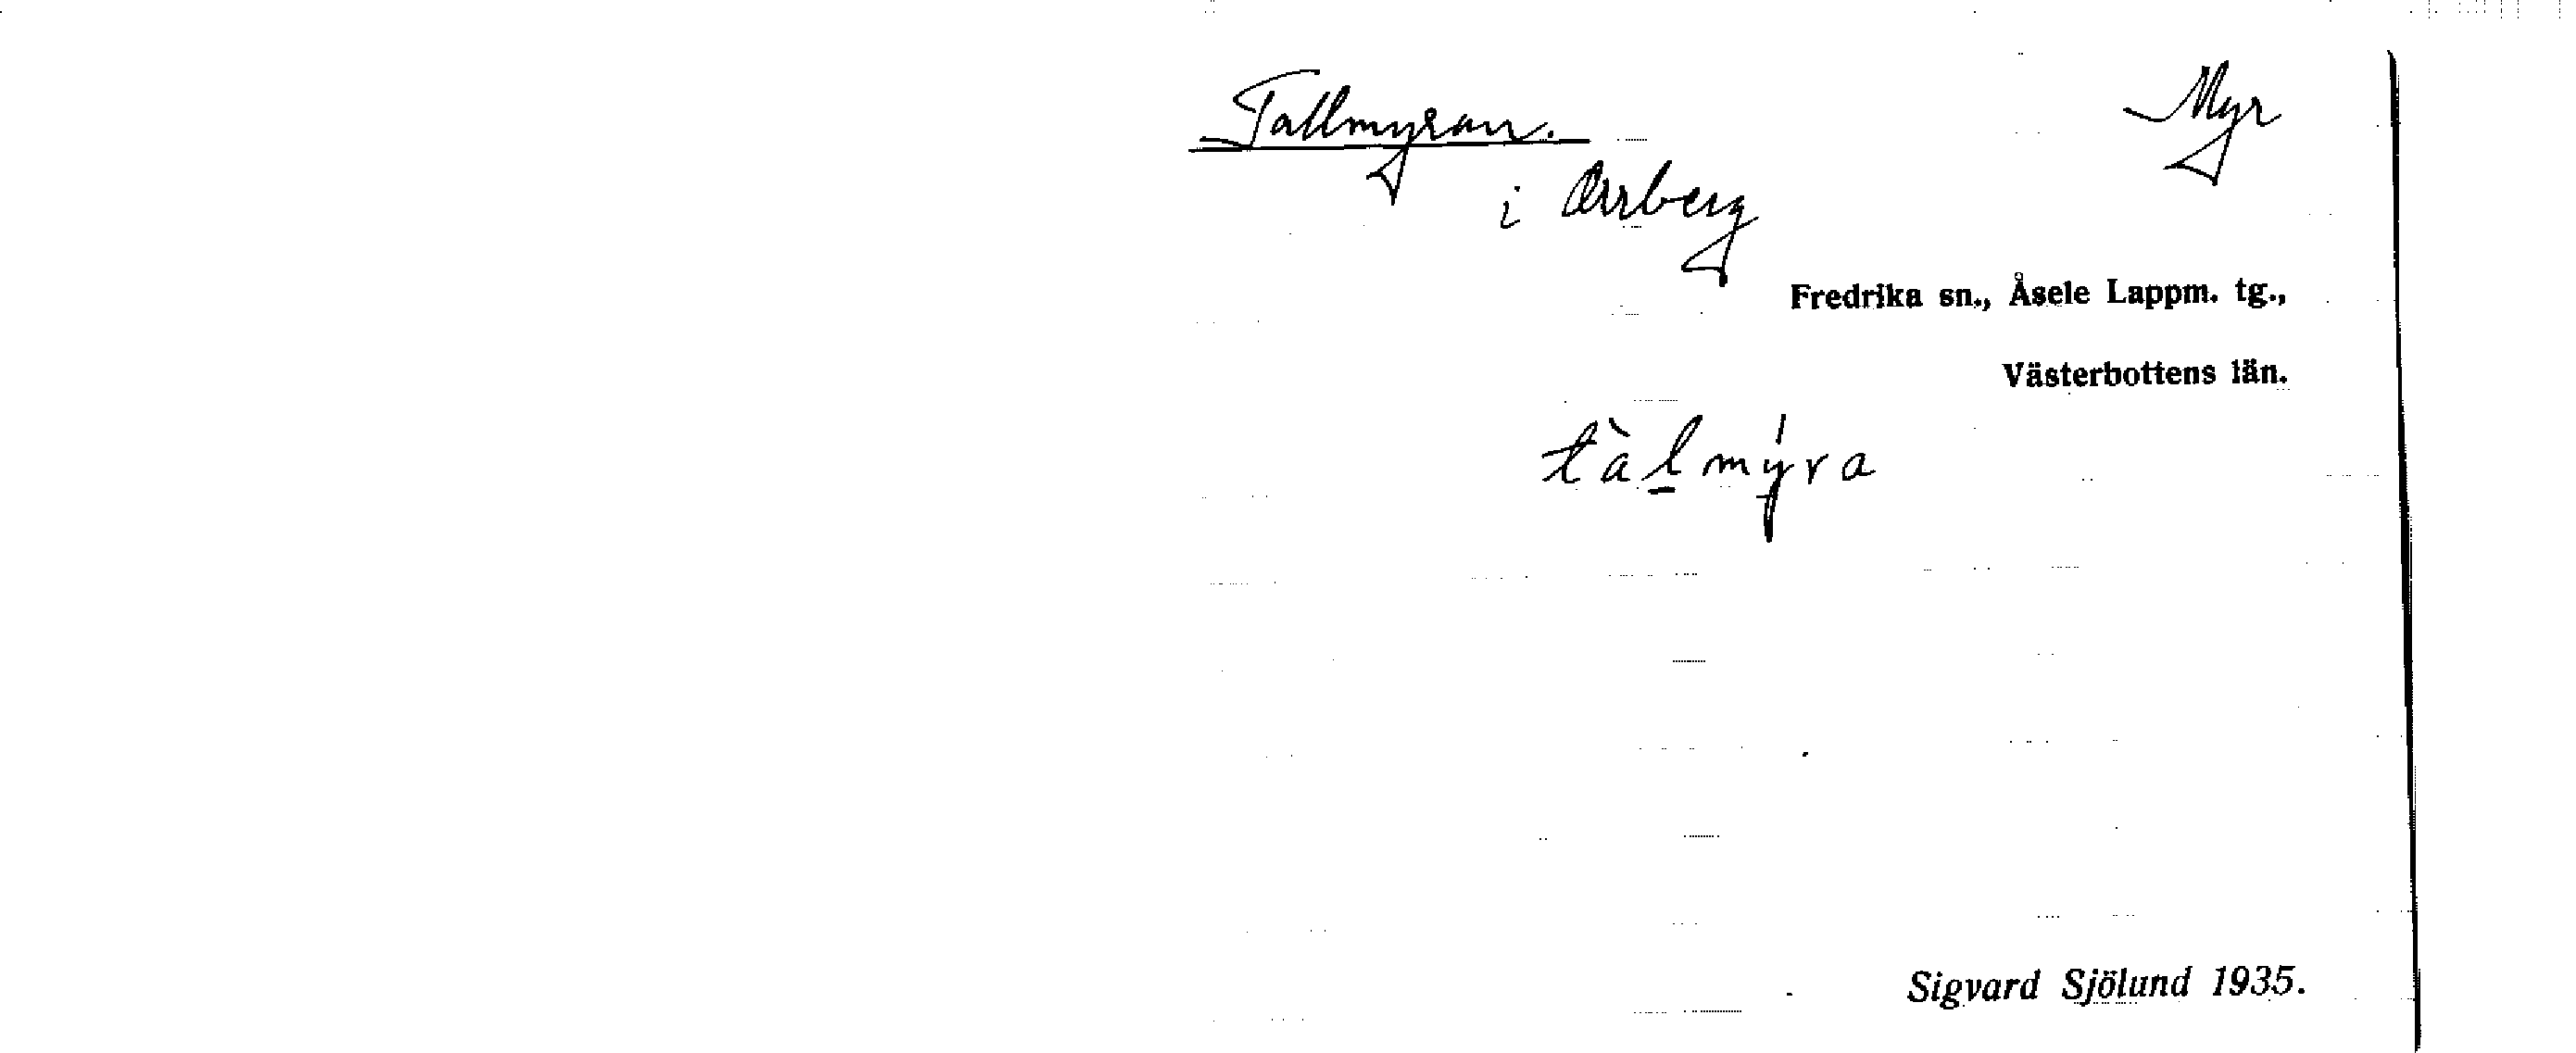 Tallmyran. Myr
i Orrberg
Fredrika sn., Åsele Lappm. tg.,
Västerbottens län.
tàl̠mýra
Sigvard Sjölund 1935.